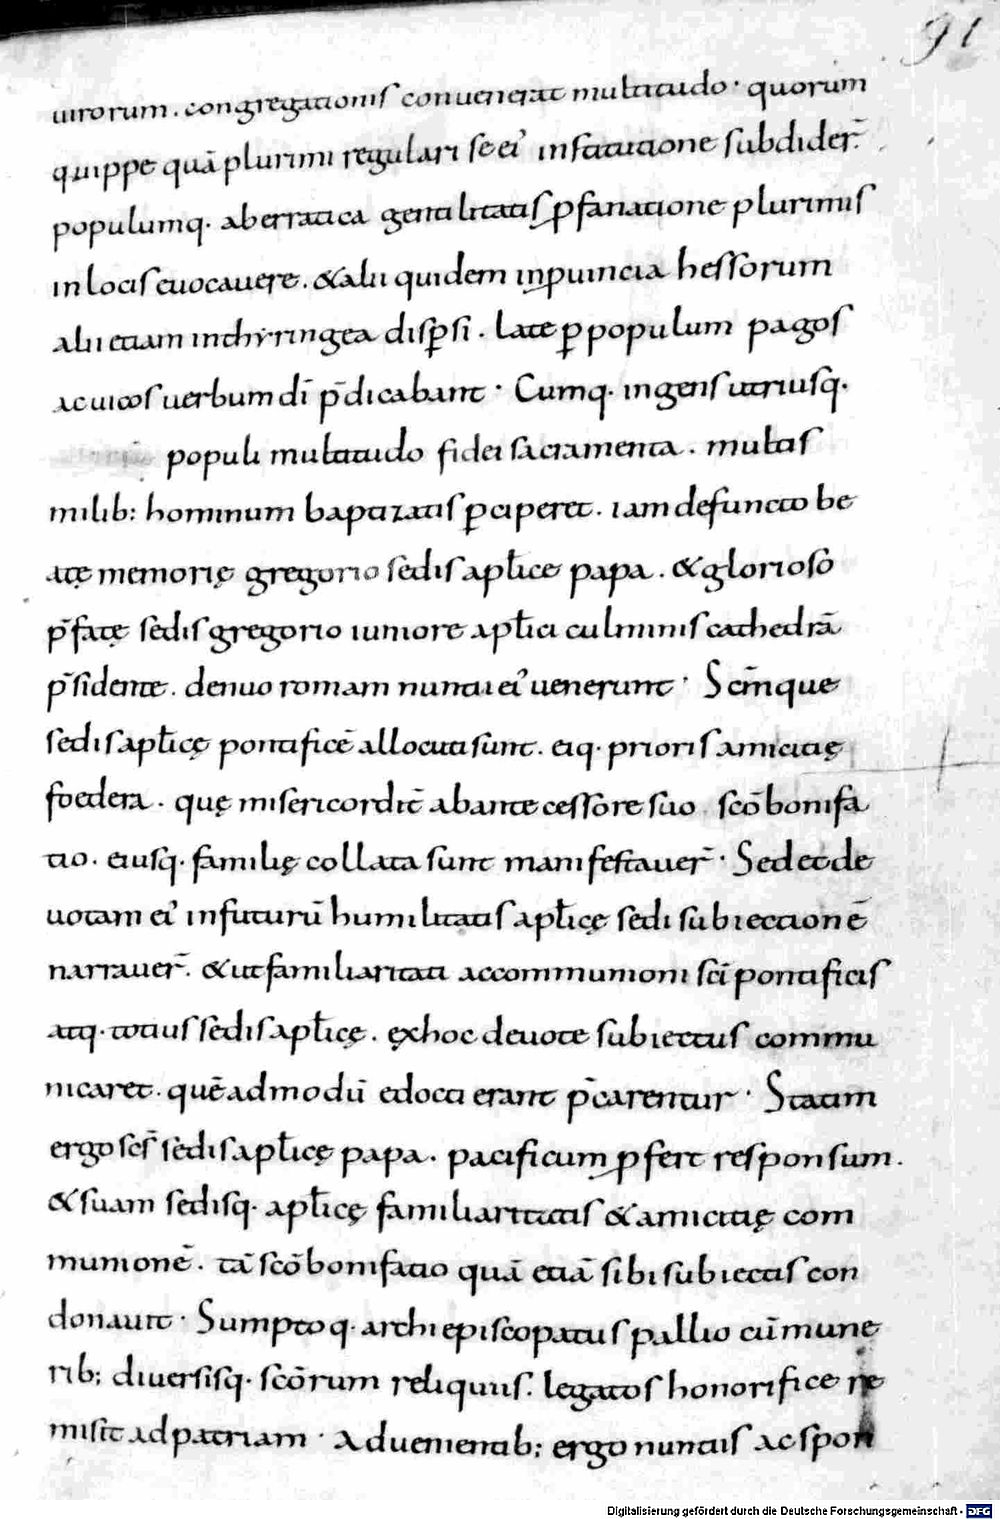 91
uirorum. congregationis conuenerat multitudo· quorum
quippe quā plurimi regulari se ei' institutione subdider̄.
populumq· aberratica gentilitatis ꝓfanatione plurimis
in locis euocauere. &alii quidem in ꝓuincia hessorum
alii etiam in thyringea disꝑsi. late ꝑ populum pagos
ac uicos uerbum dī p̄dicabant· Cumq· ingens utriusq·
populi multitudo fidei sacramenta. multis
milib: hominum baptizatis ꝑciperet. iam defuncto be
atę memorię gregorio sedis apłice papa. &glorioso
p̄fatę sedis gregorio iuniore apłici culminis cathedrā
p̄sidente. denuo romam nuntii ei' uenerunt· Sc̄mque
sedis apłicę pontificē allocuti sunt. eiq· prioris amicitię
foedera. quę misericordit̄ ab antecessore suo sc̄o bonifa
tio. eiusq· familię collata sunt manifestauer̄· Sed et de
uotam ei' in futurū humilitatis apłicę sedi subiectionē
narrauer̄. &ut familiaritati ac communioni sc̄i pontificis
atq· totius sedis apłicę. ęx hoc deuote subiectus commu
nicaret. quēadmodū edocti erant p̄carentur· Statim
ergo sc̄s sedis apłicę papa. pacificum ꝓfert responsum.
&suam sedisq· apłicę familiaritatis &amicitię com
munionē. tā sc̄o bonifatio quā etiā sibi subiectis con
donauit· Sumptoq· archiepiscopatus pallio cū mune
rib; diuersisq· sc̄orum reliquiis. legatos honorifice re
misit ad patriam· Aduenientib; ergo nuntiis ac spon
Digitalisierung gefördert durch die Deutsche Forschungsgemeinschaft - DFG